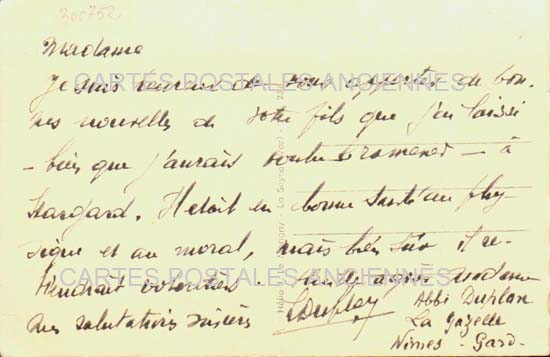 300752
Madame
Je suis heureux de vous apporter de bon-
nes nouvelles de votre fils que j'ai laissé
- bien que j'aurais voulu le ramener - à
Stargard. Il était en bonne santé au phy-
sique et au moral, mais bien sûr il re-
viendrait volontiers. Madame
mes salutations
Abbé Duplan
La Gazelle
Nîmes - Gard -
CARTES POSTALES ANCIENNES
CARTES POSTALES ANCIENNES
La Seyne (Var)